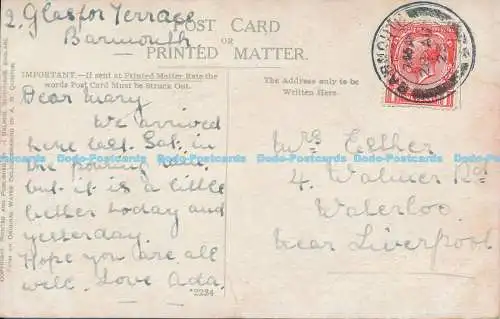 2. Glasfor Terrace
Barmouth
POST CARD
OR
PRINTED MATTER.
IMPORTANT.—If sent at Printed Matter Rate the
words Post Card Must be Struck Out.
The Address only to be
Written Here.
BARMOUTH
Dear Mary
We arrived
here last Sat. in
the pouring rain
but it is a little
better today and
yesterday.
Hope you are all
well. Love Ada.
Mrs Esther
4. Walmer Rd
Waterloo
near Liverpool
*2234
Dodo-Postcards